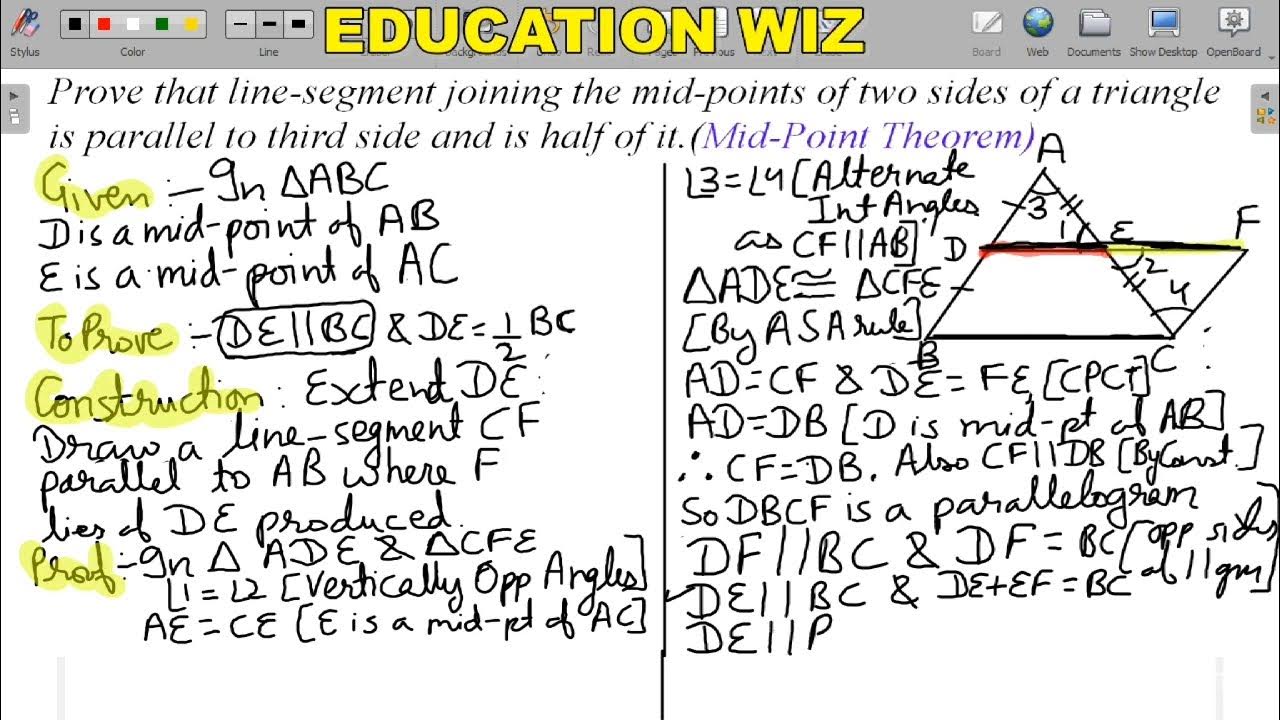 EDUCATION WIZ
Stylus
Color
Line
Board
Web
Documents
Show Desktop
OpenBoard
Prove that line-segment joining the mid-points of two sides of a triangle
is parallel to third side and is half of it.(Mid-Point Theorem)
Given :- In △ABC
D is a mid-point of AB
E is a mid-point of AC
To Prove :- DE||BC & DE=1/2 BC
Construction : Extend DE
Draw a line-segment CF
parallel to AB where F
lies of DE produced.
Proof :- In △ ADE & △CFE
∠1=∠2 [Vertically Opp Angles]
AE=CE [E is a mid-pt of AC]
∠3=∠4 [Alternate
Int Angles
as CF||AB]
△ADE≅△CFE
[By ASA rule]
AD=CF & DE=FE [CPCT]
AD=DB [D is mid-pt of AB]
∴ CF=DB. Also CF||DB [By Const.]
So DBCF is a parallelogram
DF||BC & DF=BC [opp sides
of ||gm]
DE||BC & DE+EF=BC
DE||P
A
3
1
E
F
D
2
4
B
C